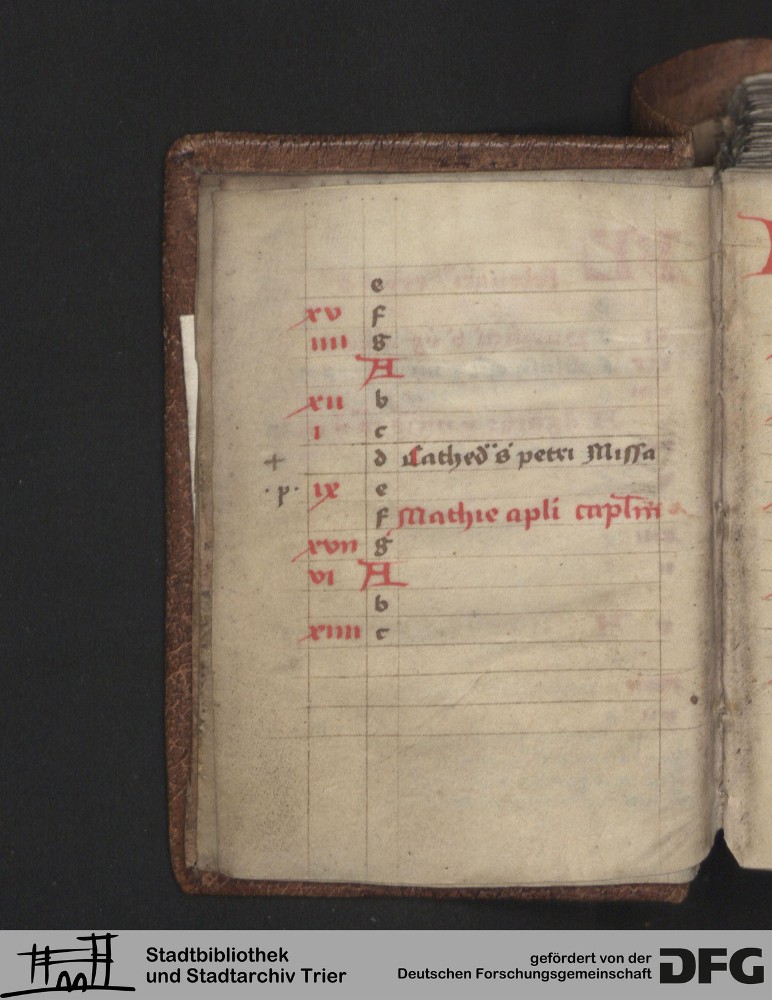 e
xv f
iiii g
A
xii b
i c
+ d Cathed' s' petri Missa
·p· ix e
f Mathie apli caplm
xvii g
vi A
b
xiiii c
Stadtbibliothek
und Stadtarchiv Trier
gefördert von der
Deutschen Forschungsgemeinschaft
DFG